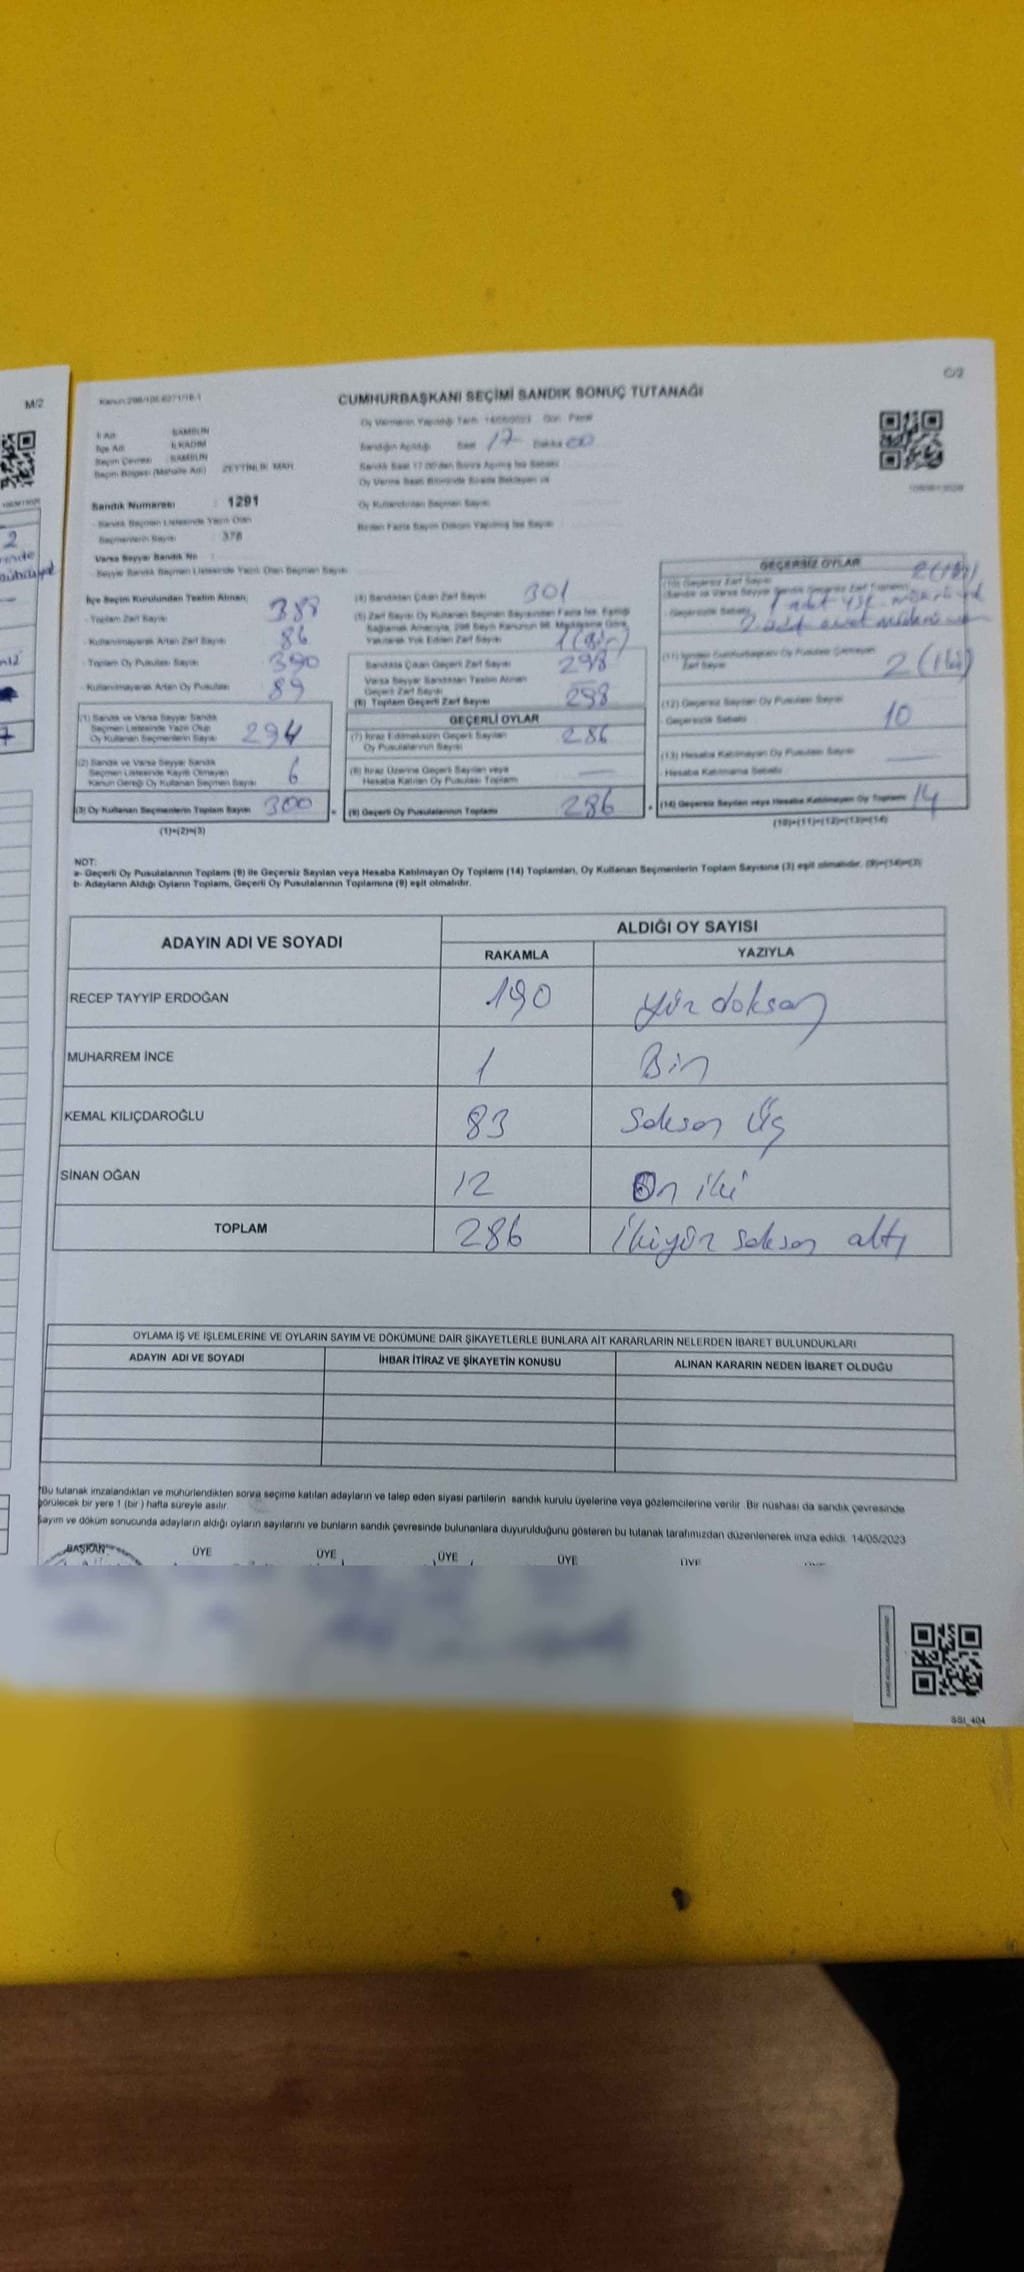 M/2
C/2
CUMHURBAŞKANI SEÇİMİ SANDIK SONUÇ TUTANAĞI
İl Adı SAMSUN
İlçe Adı İLKADIM
Seçim Çevresi SAMSUN
Seçim Bölgesi (Mahalle Adı) ZEYTİNLİK MAH.
Oy Vermenin Yapıldığı Tarih 14/05/2023 Gün Pazar
Sandığın Açıldığı Saat 17 Dakika 00
Sandık Numarası : 1291
Sandık Seçmen Listesinde Yazılı Olan
Seçmenlerin Sayısı : 378
Varsa Seyyar Sandık No
Seyyar Sandık Seçmen Listesinde Yazılı Olan Seçmen Sayısı
Oy Kullandırılan Seçmen Sayısı
Birden Fazla Sayım Döküm Yapılmış İse Sayısı
İlçe Seçim Kurulundan Teslim Alınan;
Toplam Zarf Sayısı 388
Kullanılmayarak Artan Zarf Sayısı 86
Toplam Oy Pusulası Sayısı 390
Kullanılmayarak Artan Oy Pusulası 89
(1) Sandık ve Varsa Seyyar Sandık
Seçmen Listesinde Yazılı Olup
Oy Kullanan Seçmenlerin Sayısı 294
(2) Sandık ve Varsa Seyyar Sandık
Seçmen Listesinde Kayıtlı Olmayan
Kanun Gereği Oy Kullanan Seçmen Sayısı 6
(3) Oy Kullanan Seçmenlerin Toplam Sayısı 300
(1)+(2)=(3)
(4) Sandıktan Çıkan Zarf Sayısı 301
(5) Zarf Sayısı Oy Kullanan Seçmen Sayısından Fazla İse, Eşitliği
Sağlamak Amacıyla, 298 Sayılı Kanunun 98. Maddesine Göre
Yakılarak Yok Edilen Zarf Sayısı 1 (Bir)
Sandıkta Çıkan Geçerli Zarf Sayısı 298
Varsa Seyyar Sandıktan Teslim Alınan
Geçerli Zarf Sayısı
(6) Toplam Geçerli Zarf Sayısı 298
GEÇERLİ OYLAR
(7) İtiraz Edilmeksizin Geçerli Sayılan
Oy Pusulalarının Sayısı 286
(8) İtiraz Üzerine Geçerli Sayılan veya
Hesaba Katılan Oy Pusulası Toplamı —
(9) Geçerli Oy Pusulalarının Toplamı 286
GEÇERSİZ OYLAR
(10) Geçersiz Zarf Sayısı 2 (İki)
Geçersizlik Sebebi
(11) İçinden Cumhurbaşkanı Oy Pusulası Çıkmayan
Zarf Sayısı 2 (İki)
(12) Geçersiz Sayılan Oy Pusulası Sayısı 10
Geçersizlik Sebebi
(13) Hesaba Katılmayan Oy Pusulası Sayısı —
Hesaba Katılmama Sebebi
(14) Geçersiz Sayılan veya Hesaba Katılmayan Oy Toplamı 14
(10)+(11)+(12)+(13)=(14)
NOT:
a- Geçerli Oy Pusulalarının Toplamı (9) ile Geçersiz Sayılan veya Hesaba Katılmayan Oy Toplamı (14) Toplamları, Oy Kullanan Seçmenlerin Toplam Sayısına (3) eşit olmalıdır. (9)+(14)=(3)
b- Adayların Aldığı Oyların Toplamı, Geçerli Oy Pusulalarının Toplamına (9) eşit olmalıdır.
ADAYIN ADI VE SOYADI ALDIĞI OY SAYISI
RAKAMLA YAZIYLA
RECEP TAYYİP ERDOĞAN 190 yüz doksan
MUHARREM İNCE 1 Bir
KEMAL KILIÇDAROĞLU 83 Seksen Üç
SİNAN OĞAN 12 On iki
TOPLAM 286 İkiyüz seksen altı
OYLAMA İŞ VE İŞLEMLERİNE VE OYLARIN SAYIM VE DÖKÜMÜNE DAİR ŞİKAYETLERLE BUNLARA AİT KARARLARIN NELERDEN İBARET BULUNDUKLARI
ADAYIN ADI VE SOYADI İHBAR İTİRAZ VE ŞİKAYETİN KONUSU ALINAN KARARIN NEDEN İBARET OLDUĞU
*Bu tutanak imzalandıktan ve mühürlendikten sonra seçime katılan adayların ve talep eden siyasi partilerin sandık kurulu üyelerine veya gözlemcilerine verilir. Bir nüshası da sandık çevresinde
görülecek bir yere 1 (bir ) hafta süreyle asılır.
Sayım ve döküm sonucunda adayların aldığı oyların sayılarını ve bunların sandık çevresinde bulunanlara duyurulduğunu gösteren bu tutanak tarafımızdan düzenlenerek imza edildi. 14/05/2023
BAŞKAN ÜYE ÜYE ÜYE ÜYE ÜYE
SSI_404